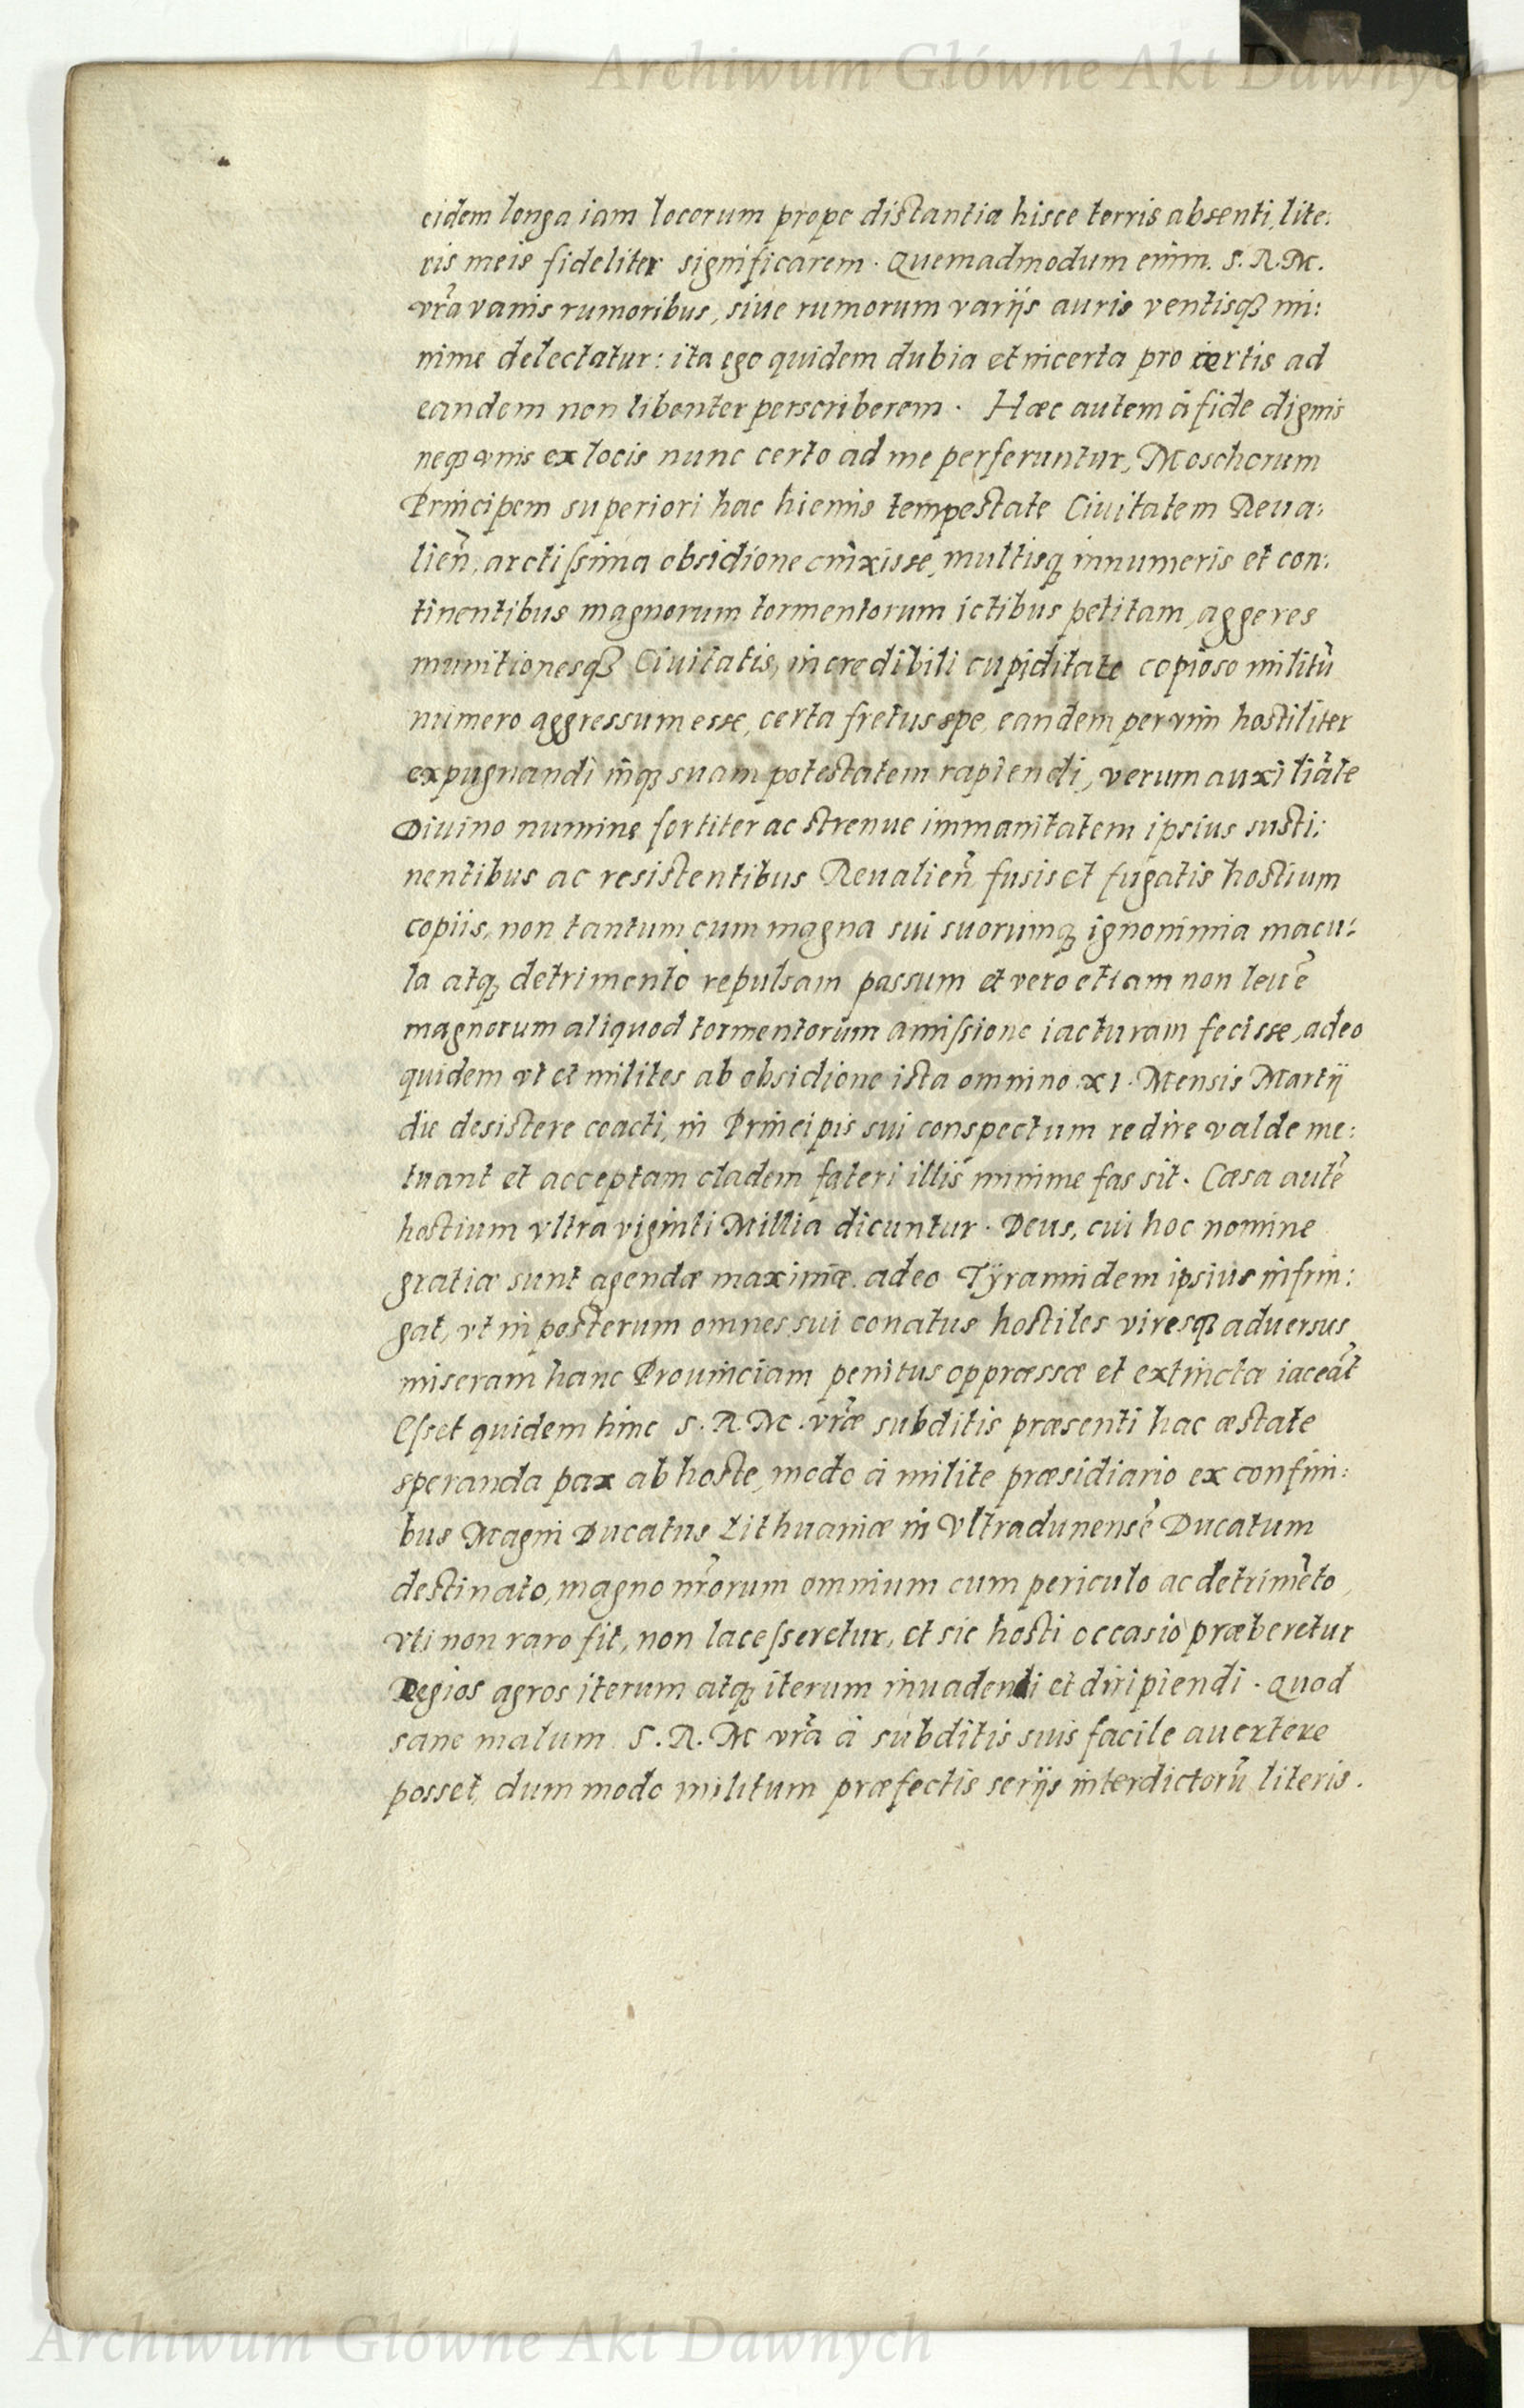 Archiwum Główne Akt Dawnych
eidem longa iam locorum prope distantia hisce terris absenti, lite:
ris meis fideliter significarem. Quemadmodum enim. S. R. M.
vr̃a vanis rumoribus, siue rumorum varijs auris ventisq3 mi:
nime delectatur: ita ego quidem dubia et incerta pro certis ad
eandem non libenter perscriberem. Hæc autem à fide dignis
neq3 vnis ex locis nunc certo ad me perferuntur, Moschorum
Principem superiori hac hiemis tempestate Ciuitatem Reua:
lien̄, arctissima obsidione cinxisse, multisq3 innumeris et con:
tinentibus magnorum tormentorum ictibus petitam, aggeres
munitionesq3 Ciuitatis, incredibili cupiditate copioso militū
numero aggressum esse, certa fretus spe, eandem per vim hostiliter
expugnandi inq3 suam potestatem rapiendi, verum auxiliāte
Diuino numine fortiter ac strenue immanitatem ipsius susti:
nentibus ac resistentibus Reualien̄ fusis et fugatis hostium
copiis, non tantum cum magna sui suorumq3 ignominia macu:
la atq3 detrimento repulsam passum et vero etiam non leuē
magnorum aliquod tormentorum amissione iacturam fecisse, adeo
quidem vt et milites ab obsidione ista omnino xi. Mensis Martij
die desistere coacti, in Principis sui conspectum redire valde me:
tuant et acceptam cladem fateri illis minime fas sit. Cæsa autē
hostium vltra viginti Millia dicuntur. Deus, cui hoc nomine
gratiæ sunt agendæ maximæ. adeo Tÿrannidem ipsius infrin:
gat, vt in posterum omnes sui conatus hostiles viresq3 aduersus
miseram hanc Prouinciam penitus oppræssæ et extinctæ iaceāt
Esset quidem hinc S. R. M. vr̃æ subditis præsenti hac æstate
speranda pax ab hoste, modo à milite præsidiario ex confini:
bus Magni Ducatus Lithuaniæ in Vltradunensē Ducatum
destinato, magno nr̃orum omnium cum periculo ac detrimēto,
vti non raro fit, non lacesseretur, et sic hosti occasio præberetur
Regios agros iterum atq3 iterum inuadendi et diripiendi. Quod
sane malum S. R. M vr̃a à subditis suis facile auertere
posset, dum modo militum præfectis serijs interdictorū literis.
Archiwum Główne Akt Dawnych